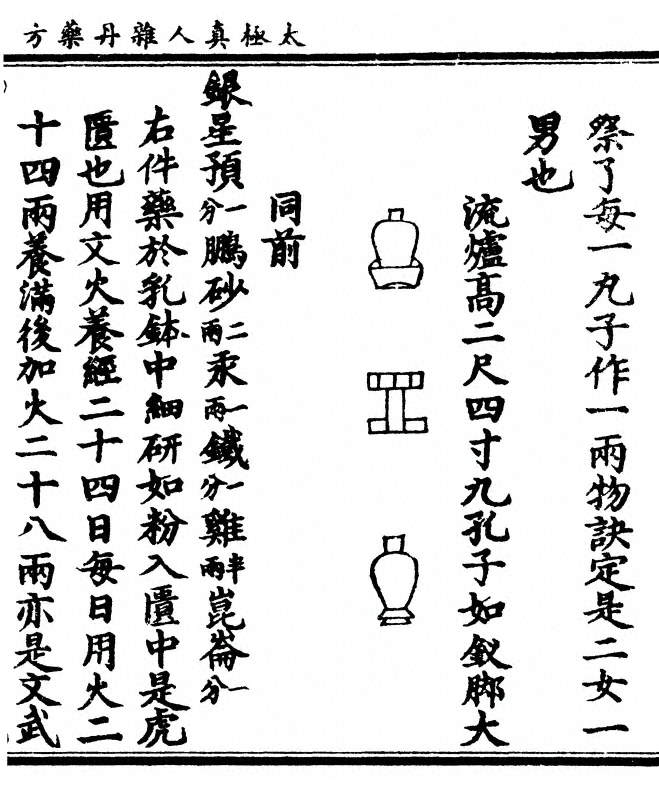 太極真人雜丹藥方
祭了每一丸子作一兩物訣定是二女一
男也
流爐高二尺四寸九孔子如釵腳大
同前
銀星預一分鵬砂二兩汞一兩鐵一分雞半兩崑崙一分
右件藥於乳鉢中細研如粉入匱中是虎
匱也用文火養經二十四日每日用火二
十四兩養滿後加火二十八兩亦是文武